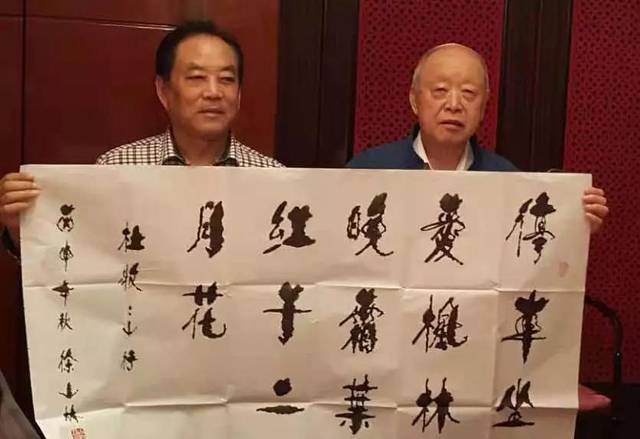 停車坐
愛楓林
晚霜葉
紅于二
月花
杜牧山行
年秋徐